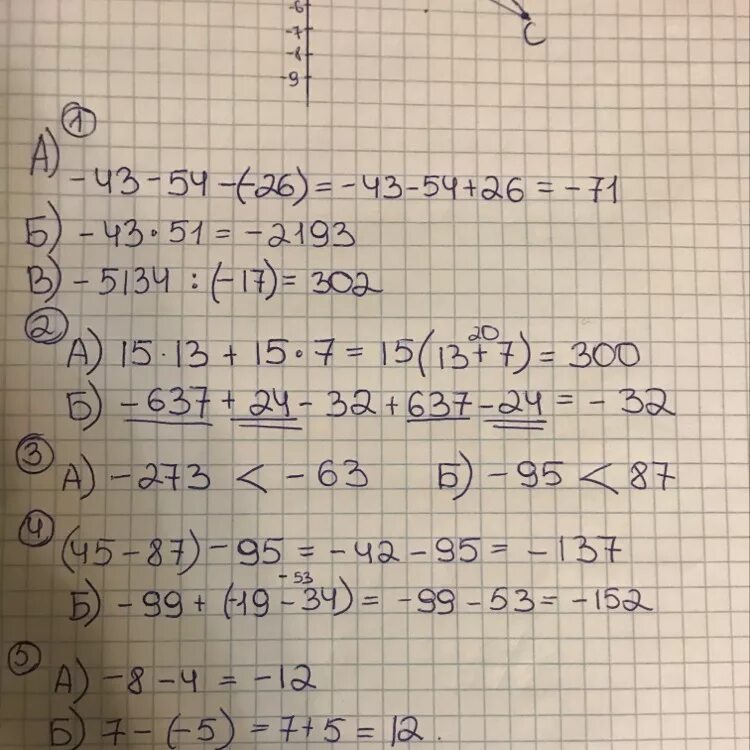 -6
-7
-8
-9
C
1
А) -43-54-(-26)=-43-54+26=-71
Б) -43·51=-2193
В) -5134:(-17)=302
2
А) 15·13+15·7=15(13+7)=300
20
Б) -637+24-32+637-24=-32
3
А) -273<-63 Б) -95<87
4
(45-87)-95=-42-95=-137
-53
Б) -99+(-19-34)=-99-53=-152
5
А) -8-4=-12
Б) 7-(-5)=7+5=12.